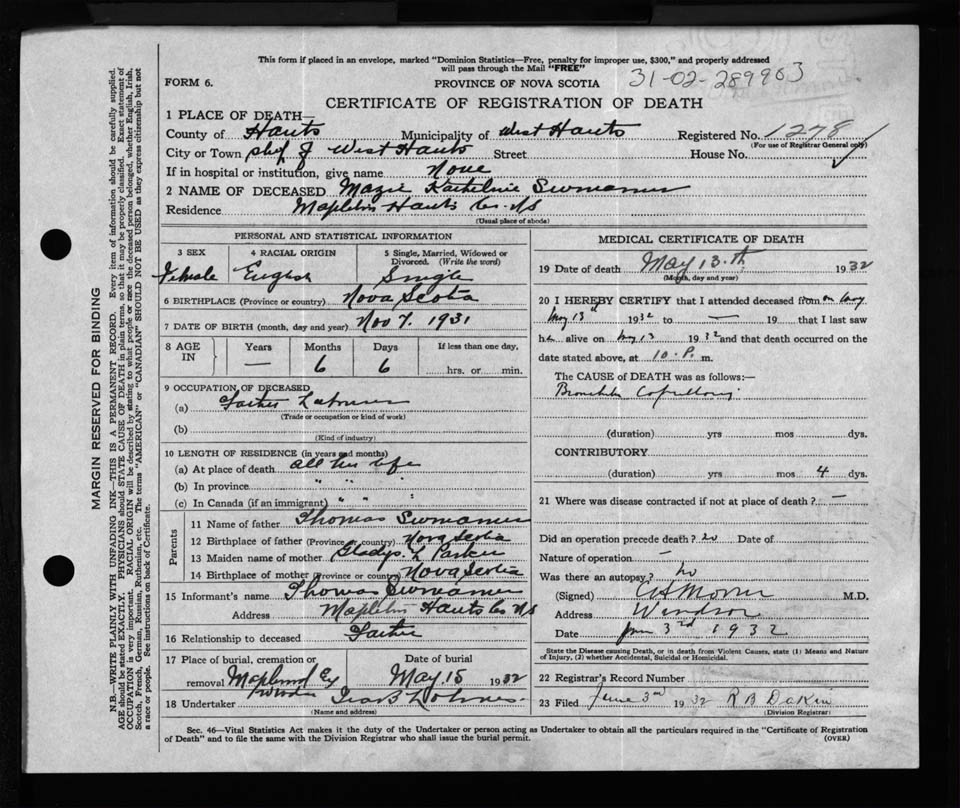 This form if placed in an envelope, marked "Dominion Statistics—Free, penalty for improper use, $300," and properly addressed
will pass through the Mail "FREE"
FORM 6. PROVINCE OF NOVA SCOTIA 31-02-289903
CERTIFICATE OF REGISTRATION OF DEATH
1 PLACE OF DEATH—
County of Hants Municipality of West Hants Registered No. 1278
(For use of Registrar General only)
City or Town of West Hants Street House No.
If in hospital or institution, give name None
2 NAME OF DECEASED Mazie
Residence Hants Co. NS
(Usual place of abode)
PERSONAL AND STATISTICAL INFORMATION
3 SEX 4 RACIAL ORIGIN 5 Single, Married, Widowed or Divorced. (Write the word)
Female English Single
6 BIRTHPLACE (Province or country) Nova Scotia
7 DATE OF BIRTH (month, day and year) Nov 7. 1931
8 AGE IN Years Months Days If less than one day,
— 6 6 hrs. or min.
9 OCCUPATION OF DECEASED
(a) Father Labourer
(Trade or occupation or kind of work)
(b)
(Kind of industry)
10 LENGTH OF RESIDENCE (in years and months)
(a) At place of death all her life
(b) In province " " "
(c) In Canada (if an immigrant) " " "
Parents
11 Name of father Thomas
12 Birthplace of father (Province or country) Nova Scotia
13 Maiden name of mother Gladys L Parker
14 Birthplace of mother (Province or country) Nova Scotia
15 Informant's name Thomas
Address Hants Co NS
16 Relationship to deceased Father
17 Place of burial, cremation or removal Date of burial
May 15 1932
18 Undertaker Ira B
(Name and address)
MEDICAL CERTIFICATE OF DEATH
19 Date of death May 13th 1932
(Month, day and year)
20 I HEREBY CERTIFY that I attended deceased from on
May 13th 1932 to — 19 that I last saw
h alive on May 13 1932 and that death occurred on the
date stated above, at 10. P. m.
The CAUSE OF DEATH was as follows:—
Bronchitis
(duration) yrs mos dys.
CONTRIBUTORY
(duration) yrs mos 4 dys.
21 Where was disease contracted if not at place of death? —
Did an operation precede death? no Date of
Nature of operation —
Was there an autopsy? no
(Signed) M.D.
Address Windsor
Date June 3rd 1932
State the Disease causing Death, or in death from Violent Causes, state (1) Means and Nature
of Injury, (2) whether Accidental, Suicidal or Homicidal.
22 Registrar's Record Number
23 Filed June 3rd 1932 R B Dakin
(Division Registrar)
Sec. 46—Vital Statistics Act makes it the duty of the Undertaker or person acting as Undertaker to obtain all the particulars required in the "Certificate of Registration
of Death" and to file the same with the Division Registrar who shall issue the burial permit. (OVER)
MARGIN RESERVED FOR BINDING
N.B.—WRITE PLAINLY WITH UNFADING INK—THIS IS A PERMANENT RECORD. Every item of information should be carefully supplied.
AGE should be stated EXACTLY. PHYSICIANS should STATE CAUSE OF DEATH in plain terms, so that it may be properly classified. Exact statement of
OCCUPATION is very important. RACIAL ORIGIN will be described by stating to what people or race the deceased person belonged, whether English, Irish,
Scotch, French, German, Russian, Ruthenian, etc. The terms "AMERICAN" or "CANADIAN" SHOULD NOT BE USED as they express citizenship but not
a race or people. See instructions on back of Certificate.